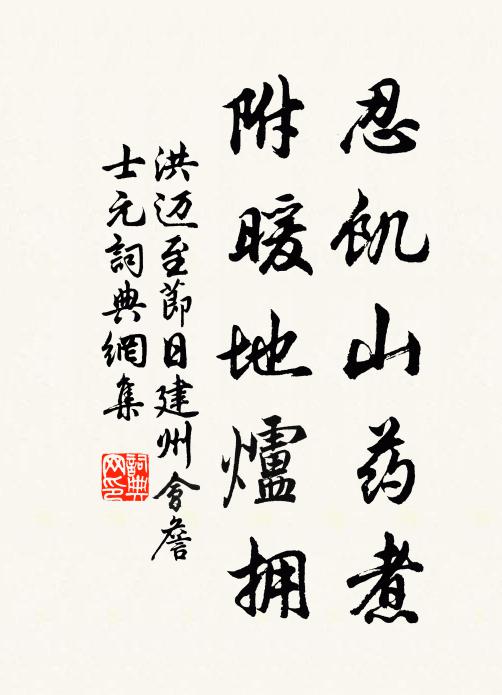 忍飢山药煮
附暖地爐拥
洪迈至節日建州會詹
士元詞典網集
詞典
网印